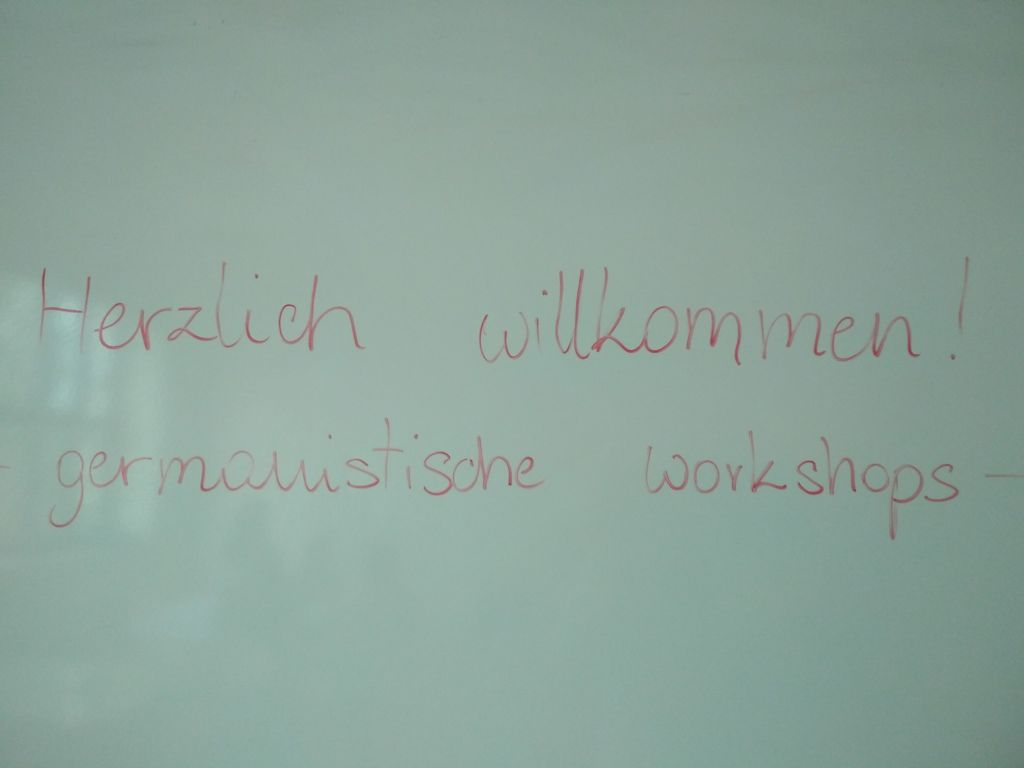 Herzlich willkommen!
- germanistische workshops -